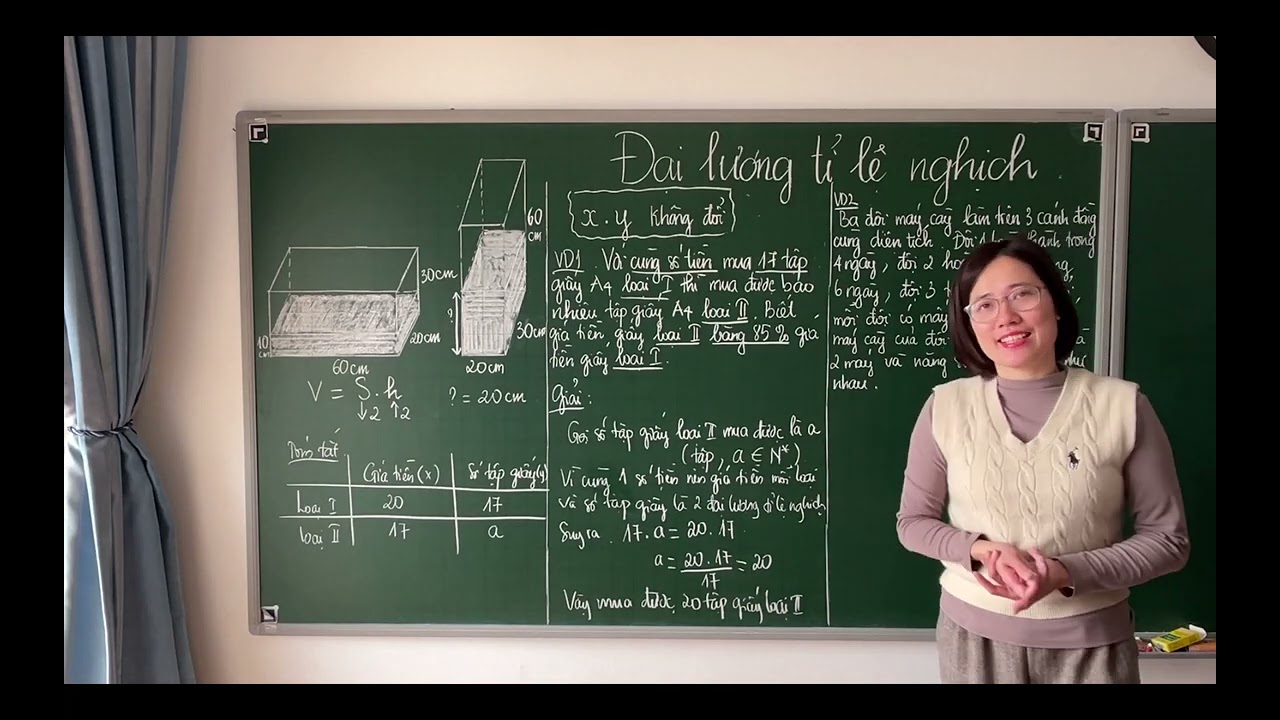 Đại lượng tỉ lệ nghịch
60
cm
30cm
?
30cm
20cm
10
cm
20cm
60cm
V = S.h
↓2 ↑2
? = 20cm
Tóm tắt
Giá tiền (x) Số tập giấy (y)
Loại I 20 17
Loại II 17 a
x.y không đổi
VD1 Với cùng số tiền mua 17 tập
giấy A4 loại I thì mua được bao
nhiêu tập giấy A4 loại II. Biết
giá tiền giấy loại II bằng 85% giá
tiền giấy loại I.
Giải:
Gọi số tập giấy loại II mua được là a
(tập, a ∈ N*)
Vì cùng 1 số tiền nên giá tiền mỗi loại
và số tập giấy là 2 đại lượng tỉ lệ nghịch
Suy ra 17.a = 20.17
a = 20.17/17 = 20
Vậy mua được 20 tập giấy loại II
VD2
Ba đội máy cày làm trên 3 cánh đồng
cùng diện tích. Đội 1
trong
4 ngày, đội 2
6 ngày, đội 3
mỗi đội có
máy cày của đội
2 máy và năng như
nhau.